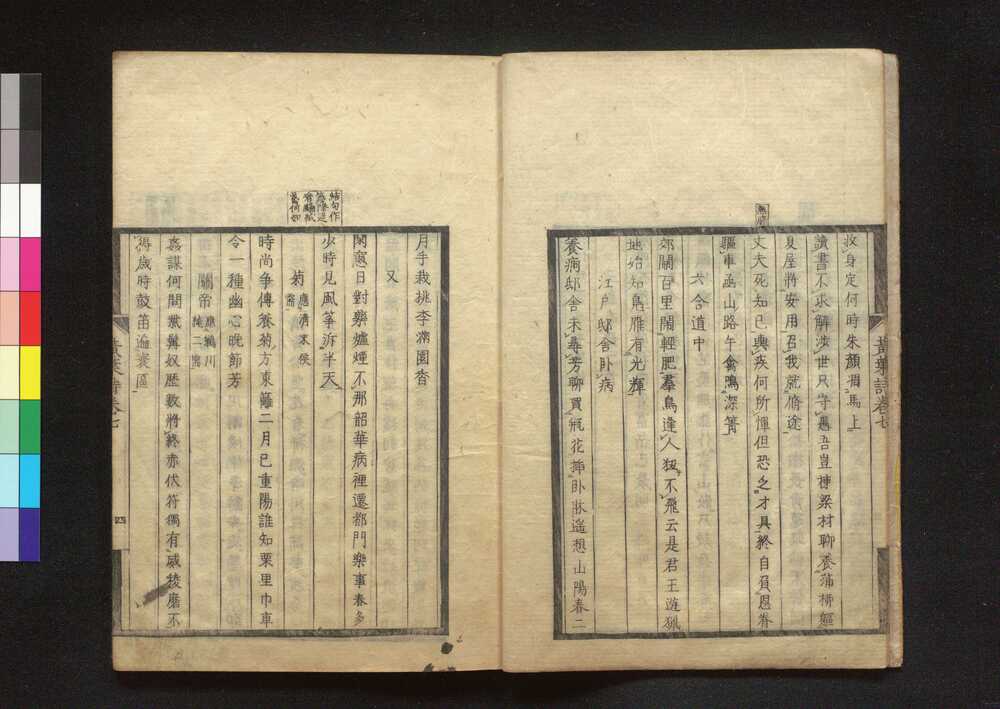 收身定何時朱顏凋馬上
讀書不求解渉世只守愚吾豈棟梁材聊養蒲柳軀
夏屋將安用召我就脩途
丈夫死知已輿疾何所憚但恐乏才具終自負恩眷
驅車函山路午禽鳴深箐
六合道中
郊關百里閙輕肥羣鳥逢人狃不飛云是君王遊猟
地始知鳧雁有光輝
江戸邸舎臥病
養痾邸舎未尋芳聊買瓶花挿臥牀遙想山陽春二
黄葉詩卷七
月手栽桃李滿園香
又
閑窻日對藥爐煙不那韶華病裡還都門樂事春多
少時見風箏泝半天
菊 應清末侯需
時尚爭傳養菊方東籬二月已重陽誰知栗里巾車
令一種幽心晩節芳
關帝 應鴨川
嘉謀何間髯奴歴數將終赤伏符獨有威稜磨不
得歳時鼓笛遍寰區
結句作
四